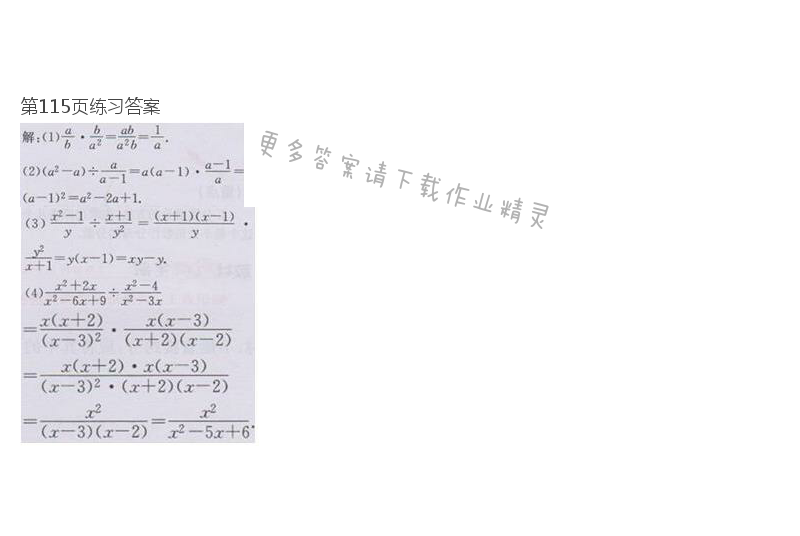 第115页练习答案
解:(1)a/b·b/a²=ab/a²b=1/a.
(2)(a²-a)÷a/(a-1)=a(a-1)·(a-1)/a=
(a-1)²=a²-2a+1.
(3)(x²-1)/y÷(x+1)/y²=(x+1)(x-1)/y·
y²/(x+1)=y(x-1)=xy-y.
(4)(x²+2x)/(x²-6x+9)÷(x²-4)/(x²-3x)
=x(x+2)/(x-3)²·x(x-3)/(x+2)(x-2)
=x(x+2)·x(x-3)/(x-3)²·(x+2)(x-2)
=x²/(x-3)(x-2)=x²/(x²-5x+6).
更多答案请下载作业精灵